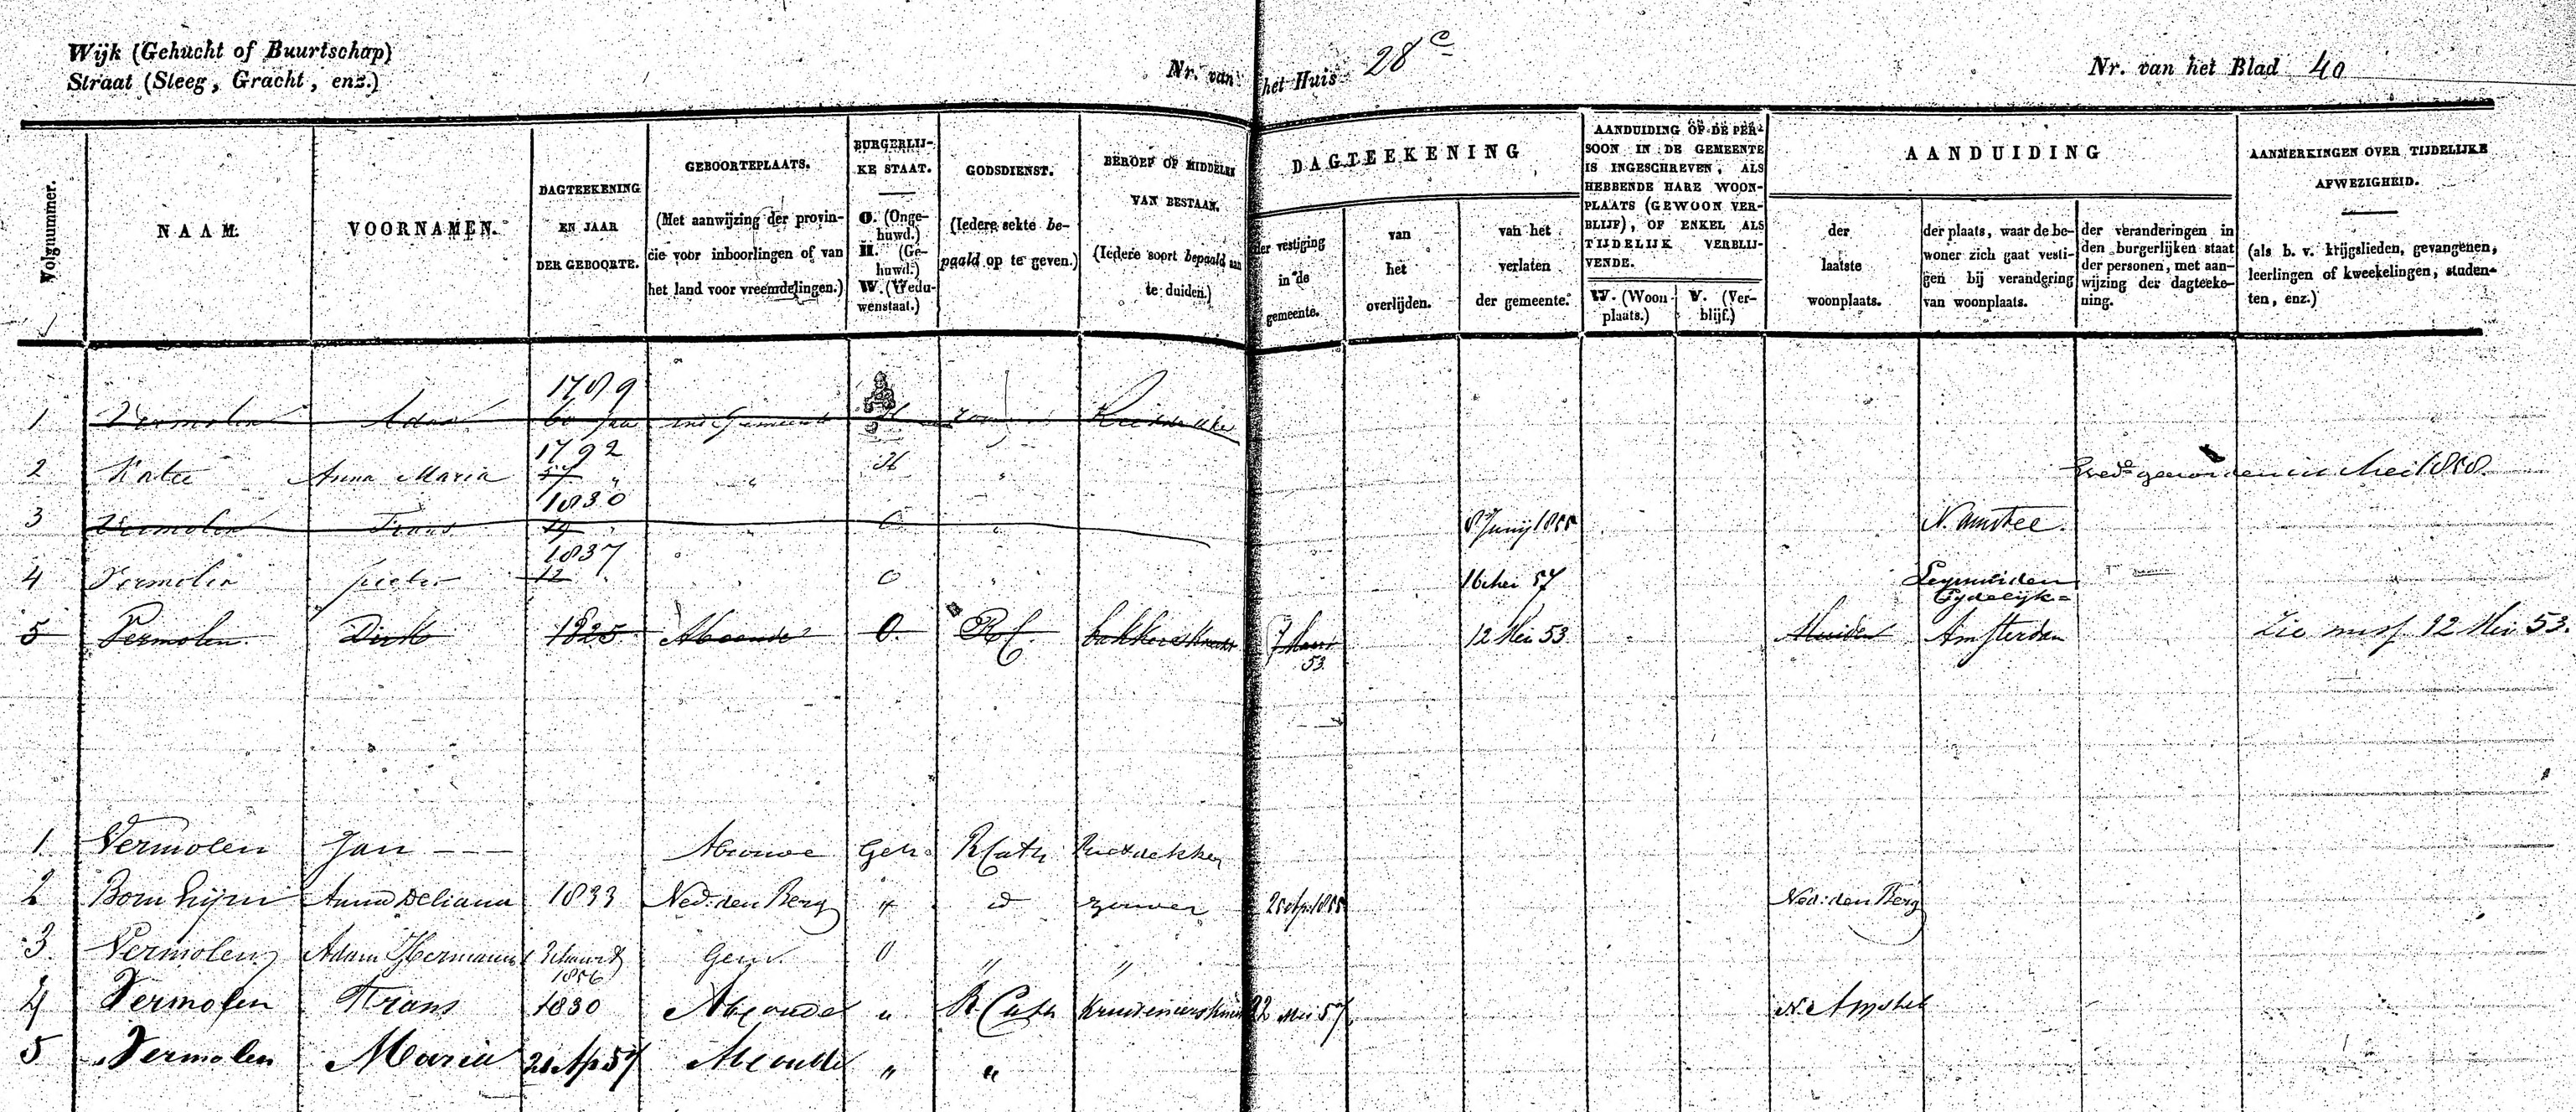 Wijk (Gehucht of Buurtschap)
Straat (Steeg, Gracht, enz.)
Nr. van het Huis 28 c
Nr. van het Blad 40
Volgnummer.
NAAM.
VOORNAMEN.
DAGTEEKENING
EN JAAR
DER GEBOORTE.
GEBOORTEPLAATS.
(Met aanwijzing der provin-
cie voor inboorlingen of van
het land voor vreemdelingen.)
BURGERLIJ-
KE STAAT.
O. (Onge-
huwd.)
H. (Ge-
huwd.)
W. (Wedu-
wenstaat.)
GODSDIENST.
(Iedere sekte be-
paald op te geven.)
BEROEP OF MIDDELEN
VAN BESTAAN.
(Iedere soort bepaald aan
te duiden.)
DAGTEEKENING
der vestiging
in de
gemeente.
van
het
overlijden.
van het
verlaten
der gemeente.
AANDUIDING OF DE PER-
SOON IN DE GEMEENTE
IS INGESCHREVEN, ALS
HEBBENDE HARE WOON-
PLAATS (GEWOON VER-
BLIJF), OF ENKEL ALS
TIJDELIJK VERBLIJ-
VENDE.
W. (Woon-
plaats.)
V. (Ver-
blijf.)
AANDUIDING
der
laatste
woonplaats.
der plaats, waar de be-
woner zich gaat vesti-
gen bij verandering
van woonplaats.
der veranderingen in
den burgerlijken staat
der personen, met aan-
wijzing der dagteeke-
ning.
AANMERKINGEN OVER TIJDELIJKE
AFWEZIGHEID.
(als b. v. krijgslieden, gevangenen,
leerlingen of kweekelingen, studen-
ten, enz.)
1789
1 Vermolen Adam 60 jaar H
1792
2 Anna Maria 57 " " H " geworden in Mei 1858
1830
3 Vermolen Frans 19 " O " 8 Junij 1855 N. Amstel.
1837
4 Vermolen pieter 12 " O " 16 Mei 57 Leymuiden
tydelijk =
5 Vermolen Dirk 1825 Abcoude O. RC bakkersknecht 7 Maart 53 12 Mei 53 Muiden Amsterdam Zie misf 12 Mei 53.
1. Vermolen Jan - - - Abcoude Geh. R Cath Rietdekker
2 Anna Deliana 1833 Ned: den Berg " d 1855 Ned: den Berg
3. Vermolen Adam Hermanus Maart 1856 Gem. O " "
4 Vermolen Frans 1830 Abcoude " R. Cath 22 Mei 57 N. Amstel
5 Vermolen Maria 21 Ap 57 Abcoude " "